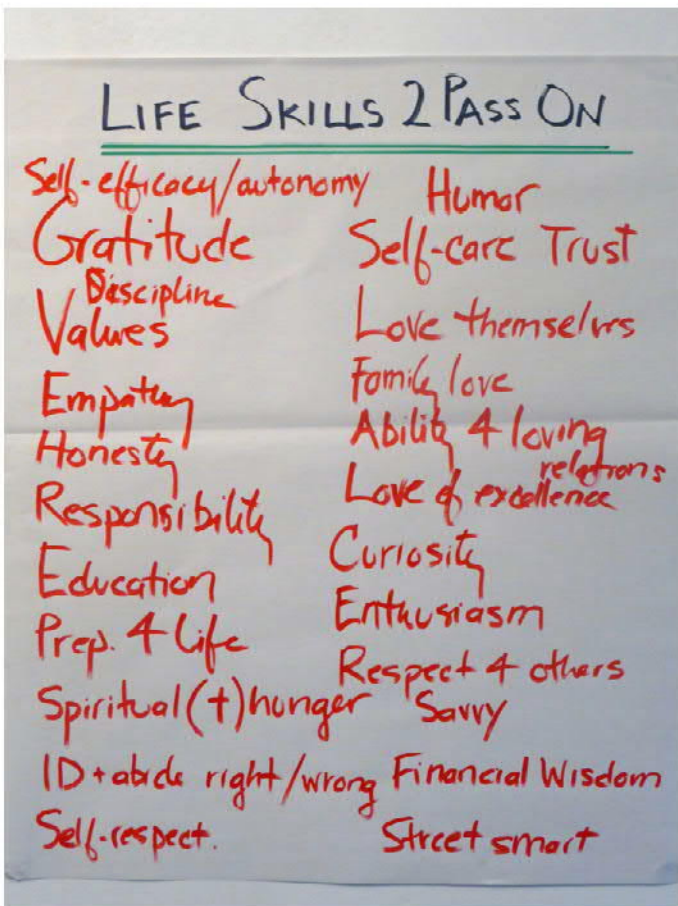 LIFE SKILLS 2 PASS ON
Self-efficacy/autonomy
Gratitude
Discipline
Values
Empathy
Honesty
Responsibility
Education
Prep. 4 Life
Spiritual (+) hunger
ID + abide right/wrong
Self-respect.
Humor
Self-care Trust
Love themselves
Family love
Ability 4 loving
relations
Love of excellence
Curiosity
Enthusiasm
Respect 4 others
Savvy
Financial Wisdom
Street smart